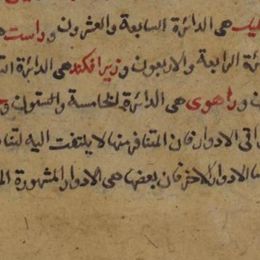 هى الدائرة السابعة والعشرون وراست
ئرة الرابعة والاربعون وزيرافكند هى الدائرة
وراهوى هى الدائرة الخامسة والستون
اقى الادوار فان المتنافر منها لا يلتفت اليه
الادوار الاخر فان بعضها هى الادوار المشهورة